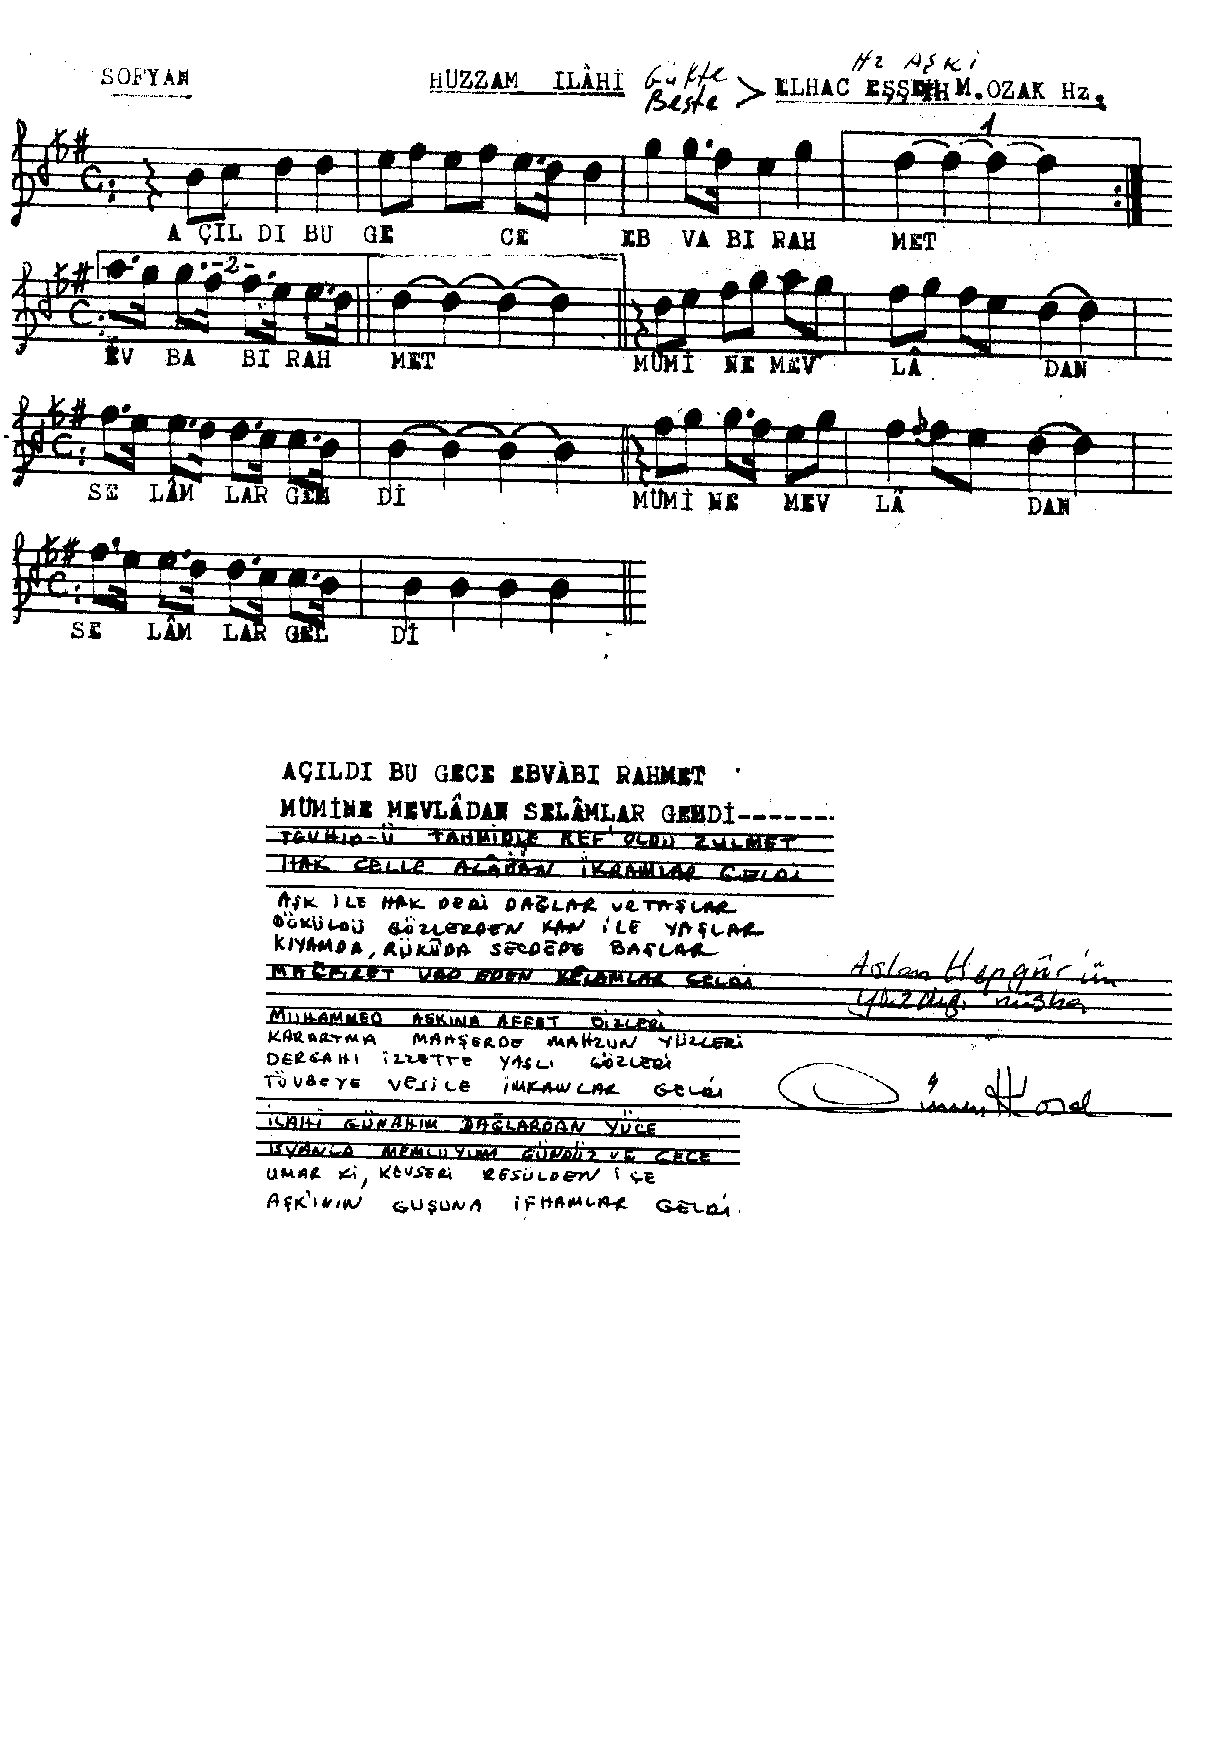 Hz AŞKİ
SOFYAN HUZZAM ILÂHİ Güfte Beste > ELHAC EŞŞEIH M. OZAK Hz.
1
A ÇIL DI BU GE CE EB VA BI RAH MET
2
EV BA BI RAH MET MÜMİ NE MEV LÂ DAN
SE LÂM LAR GEL Dİ MÜMİ NE MEV LÂ DAN
SE LÂM LAR GEL Dİ
AÇILDI BU GECE EBVÀBI RAHMET
MÜMİNE MEVLÂDAN SELÂMLAR GELDİ-------
TEVHİD-Ü TAHMİDLE REF' OLDU ZULMET
HAK CELLE ALÂDAN İKRAMLAR GELDİ
AŞK İLE HAK DEDİ DAĞLAR VE TAŞLAR
DÖKÜLDÜ GÖZLERDEN KAN İLE YAŞLAR
KIYAMDA, RÜKÛDA SECDEDE BAŞLAR
MAĞFİRET VAD EDEN KELAMLAR GELDİ
Aslan Hepgür'ün
yazdığı nüsha
MUHAMMED AŞKINA AFFET BİZLERİ
KARARTMA MAHŞERDE MAHZUN YÜZLERİ
DERGAHI İZZETTE YAŞLI GÖZLERİ
TÖVBEYE VESİLE İMKANLAR GELDİ
İLAHİ GÜNAHIM DAĞLARDAN YÜCE
İSYANLA MEMLUYUM GÜNDÜZ VE GECE
UMAR Kİ, KEVSERİ RESÜLDEN İÇE
AŞK'ININ GUŞUNA İFHAMLAR GELDİ.